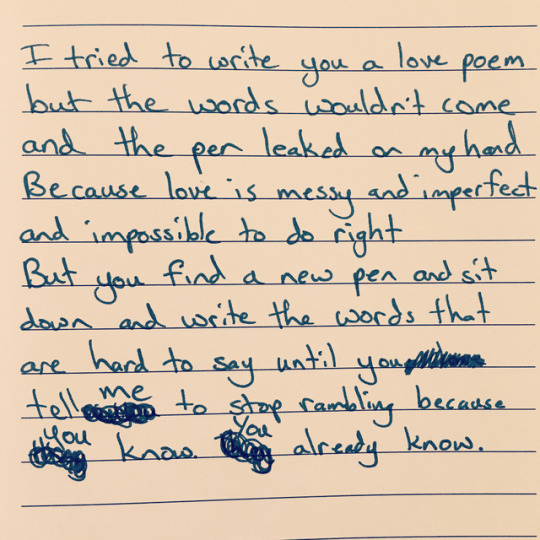 I tried to write you a love poem
but the words wouldn't come
and the pen leaked on my hand
Because love is messy and imperfect
and impossible to do right
But you find a new pen and sit
down and write the words that
are hard to say until you
tell me to stop rambling because
you know. You already know.